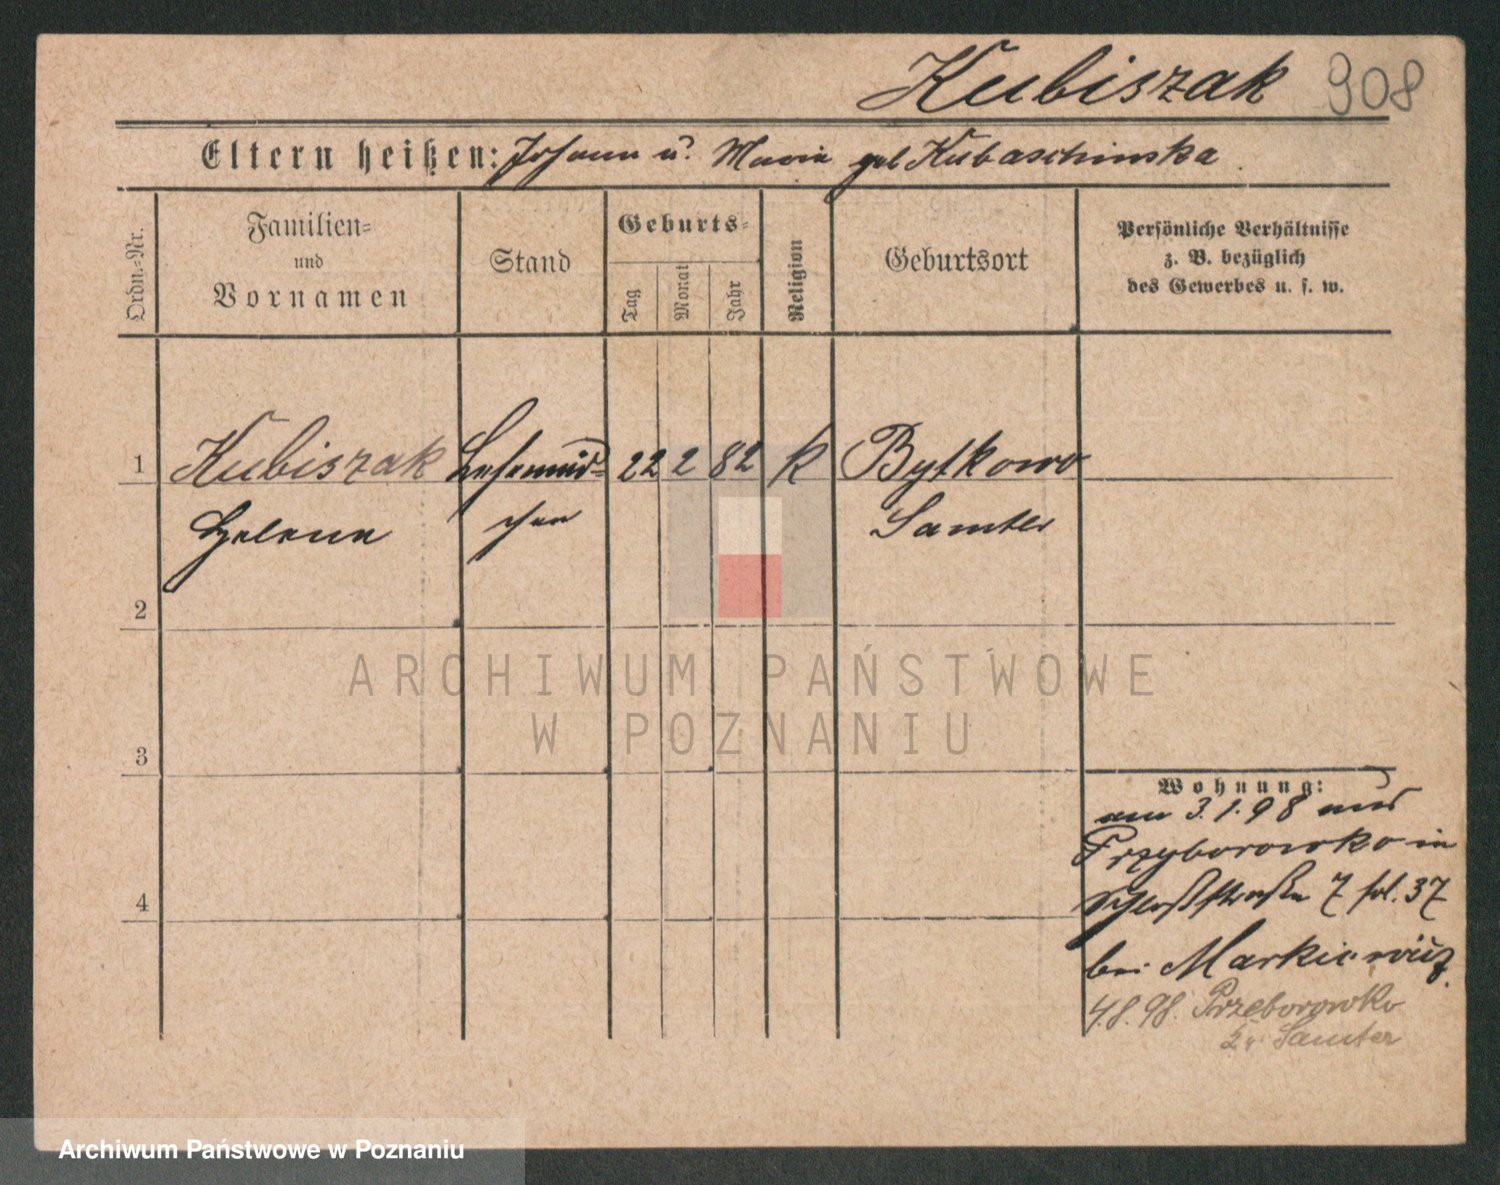 Kubiszak 908
Eltern heißen: Johann u. Maria geb Kubaschinska
Ordn.=Nr.
Familien=
und
Vornamen
Stand
Geburts=
Tag
Monat
Jahr
Religion
Geburtsort
Persönliche Verhältnisse
z. B. bezüglich
des Gewerbes u. s. w.
1 Kubiszak 22 2 82 K Bytkowo
Helene chen Samter
2
3
4
Wohnung:
am 3.1.98 aus
Przyborowko in
Schloßstraße 7 fol. 37
bei Markiewicz.
4.8.98. Przeborowko
Kr. Samter
ARCHIWUM PAŃSTWOWE
W POZNANIU
Archiwum Państwowe w Poznaniu